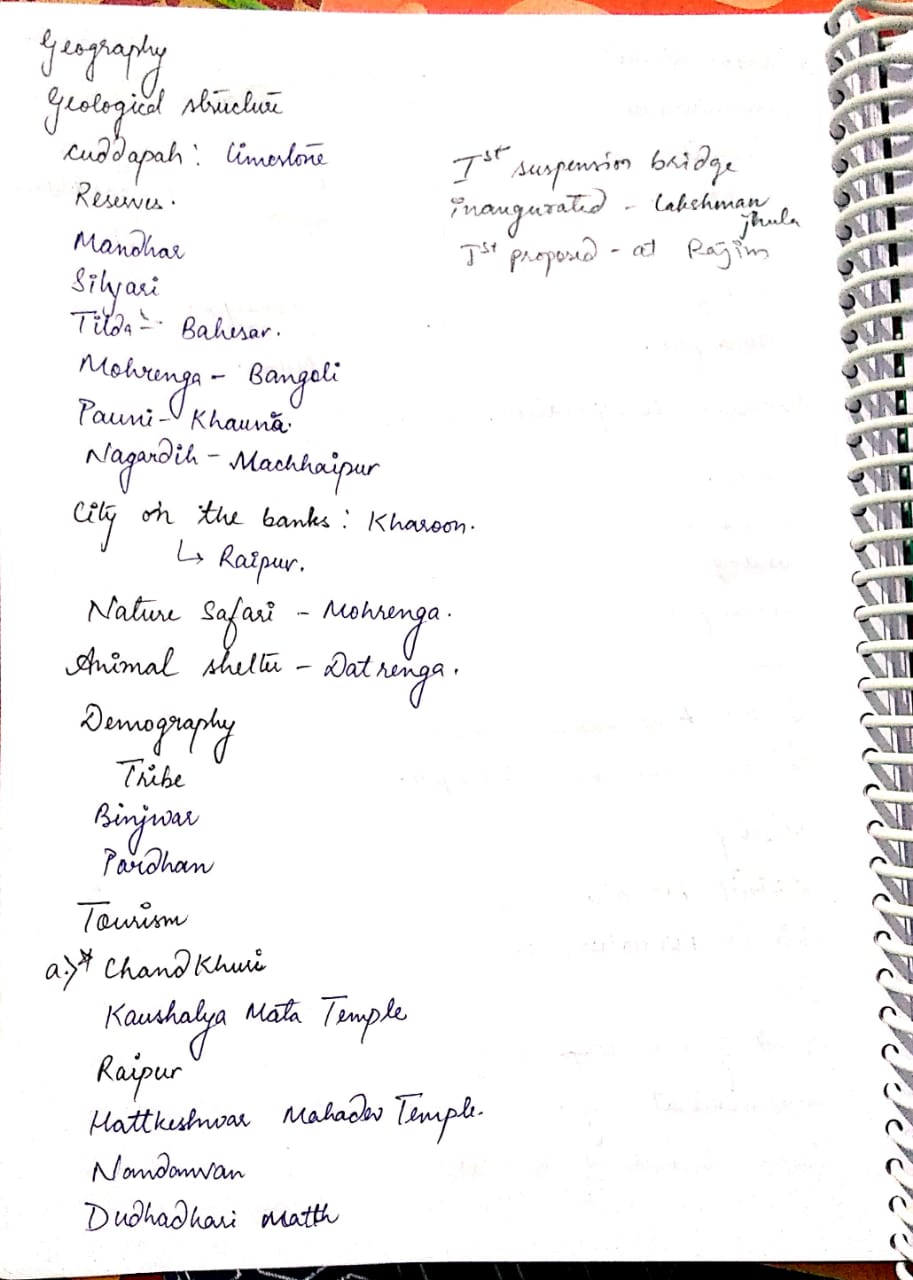 Geography
Geological structure
Cuddapah: limestone
Reserves.
Mandhar
Silyari
Tilda - Bahesar.
Mohrenga - Bangoli
Pauni - Khauna.
Nagardih - Machhaipur
City on the banks: Kharoon.
↳ Raipur.
Nature Safari - Mohrenga.
Animal shelter - Datrenga.
Demography
Tribe
Binjwar
Pardhan
Tourism
a.)* Chandkhuri
Kaushalya Mata Temple
Raipur
Hattkeshwar Mahadev Temple.
Nandanvan
Dudhadhari Matth
Ist suspension bridge
inaugurated - Lakshman
jhula
Ist proposed - at Rajim